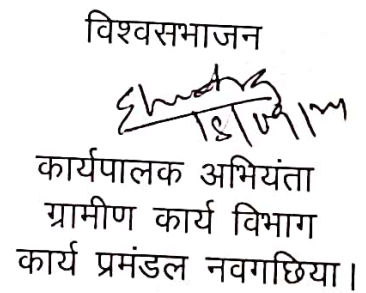 विश्वसभाजन
कार्यपालक अभियंता
ग्रामीण कार्य विभाग
कार्य प्रमंडल नवगछिया।